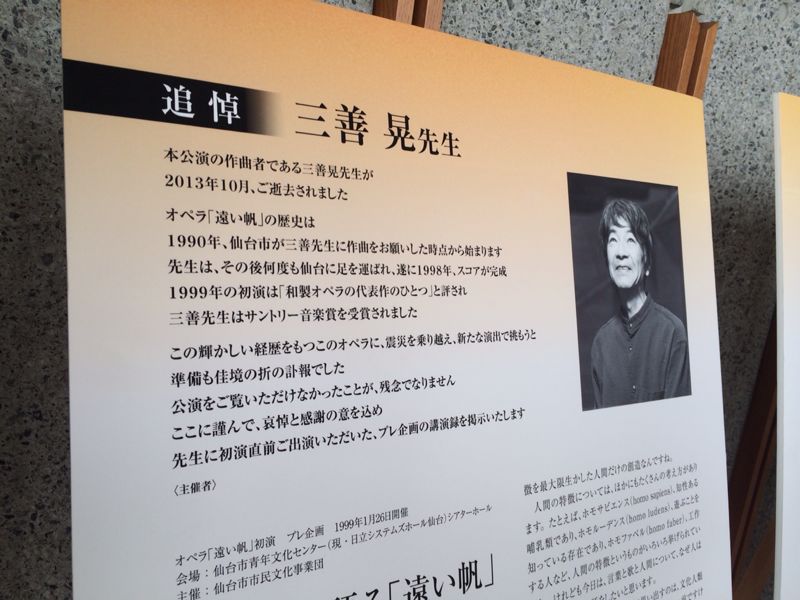 追悼 三善 晃先生
本公演の作曲者である三善晃先生が
2013年10月、ご逝去されました
オペラ「遠い帆」の歴史は
1990年、仙台市が三善先生に作曲をお願いした時点から始まります
先生は、その後何度も仙台に足を運ばれ、遂に1998年、スコアが完成
1999年の初演は「和製オペラの代表作のひとつ」と評され
三善先生はサントリー音楽賞を受賞されました
この輝かしい経歴をもつこのオペラに、震災を乗り越え、新たな演出で挑もうと
準備も佳境の折の訃報でした
公演をご覧いただけなかったことが、残念でなりません
ここに謹んで、哀悼と感謝の意を込め
先生に初演直前ご出演いただいた、プレ企画の講演録を掲示いたします
〈主催者〉
オペラ「遠い帆」初演 プレ企画 1999年1月26日開催
会場：仙台市青年文化センター（現・日立システムズホール仙台）シアターホール
主催：仙台市市民文化事業団
る「遠い帆」
徴を最大限生かした人間だけの創造なんですね。
人間の特徴については、ほかにもたくさんの考え方があり
ます。たとえば、ホモサピエンス（homo sapiens）、知性ある
哺乳類であり、ホモルーデンス（homo ludens）、遊ぶことを
知っている存在であり、ホモファベル（homo faber）、工作
する人など、人間の特徴というものがいろいろ挙げられてい
けれども今日は、言葉と歌と人間について、なぜ人は
をしたいと思います。
思い出すのは、文化人類